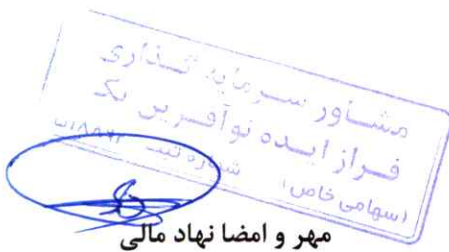 مشاور سرمایه گذاری
فراز ایده نوآفرین تک
(سهامی خاص) شماره ثبت
مهر و امضا نهاد مالی